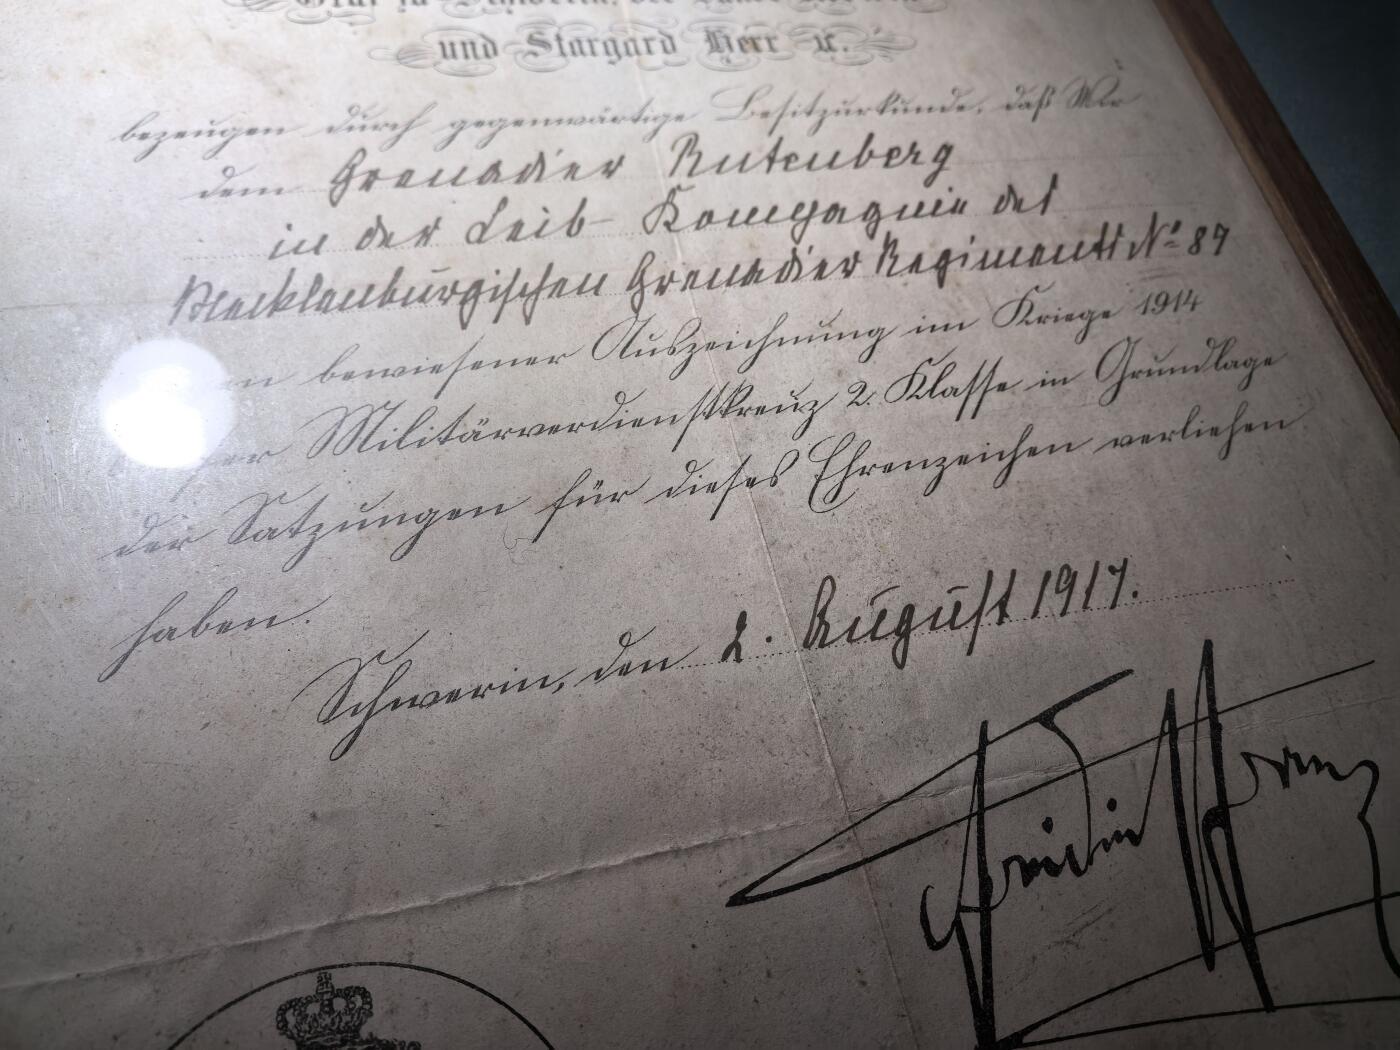 Graf zu Schwerin, der Lande Rostock
und Stargard Herr ꝛc.
bezeugen durch gegenwärtige Besitzurkunde, daß Wir
dem Grenadier Rutenberg
in der Leib-Kompagnie des
Mecklenburgischen Grenadier Regiments No 89
bewiesener Auszeichnung im Kriege 1914
Militärverdienstkreuz 2. Klasse in Grundlage
der Satzungen für dieses Ehrenzeichen verliehen
haben.
Schwerin, den 2. August 1917.
Friedrich Franz